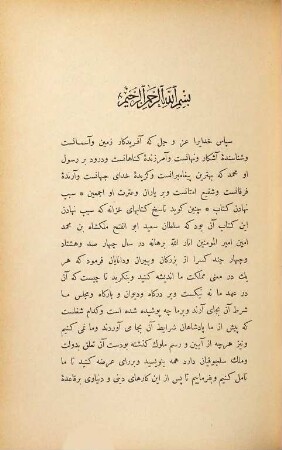 بسم الله الرحمن الرحیم
سپاس خدایرا عز و جل که آفریدکار زمین وآسمانست
وشناسندهٔ آشکار ونهانست وآمرزندهٔ کناهانست ودرود بر رسول
او محمد که بهترین پیغامبرانست وکزیدهٔ خدای جهانست وآرندهٔ
فرقانست وشفیع امتانست وبر یاران وعترت او اجمعین * سبب
نهادن کتاب * چنین کوید ناسخ کتابهای خزانه که سبب نهادن
این کتاب آن بود که سلطان سعید ابو الفتح ملکشاه بن محمد
امین امیر المومنین انار الله برهانه در سال چهار صد وهشتاد
وچهار چند کس را از بزرکان وپیران ودانایان فرمود که هر
یك در معنی مملکت ما اندیشه کنید وبنکرید تا چیست که آن
در عهد ما نه نیکست وبر درکاه ودیوان و بارکاه ومجلس ما
شرط آن بجای آرند وبرما چه پوشیده شده است وکدام شغلست
که پیش از ما پادشاهان شرایط آن بجا می آوردند وما نمی کنیم
ونیز هرچه از آیین و رسم ملوك کذشته بودست آن تعلق بدولت
وملك سلجوقیان دارد همه بنویسید وبررای عرضه کنید تا ما
تامل کنیم وبفرماییم تا پس از این کارهای دینی و دنیاوی برقاعدهٔ